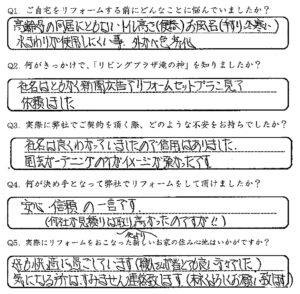 Q1. ご自宅をリフォームする前にどんなことに悩んでいましたか？
高齢母の同居にともない トイレ高さ（便器） お風呂（手すり、冬寒い）
水まわりが使用しにくい事
Q2. 何がきっかけで、「リビングプラザ滝の神」を知りましたか？
社名はともかく新聞広告でリフォームセットプランこ見て
依頼しました
Q3. 実際に弊社でご契約を頂く際、どのような不安をお持ちでしたか？
社名は良くわかっていましたので信用はありました。
園芸ガーデニングの方がイメージが深かったです
Q4. 何が決め手となって弊社でリフォームをして頂けましたか？
安心・信頼の一言です
（何社か見積りは取り高かったのですが!!）
Q5. 実際にリフォームをおこなった新しいお家の住み心地はいかがですか？
母が快適に過ごしています
気になる所はすみません連絡致します